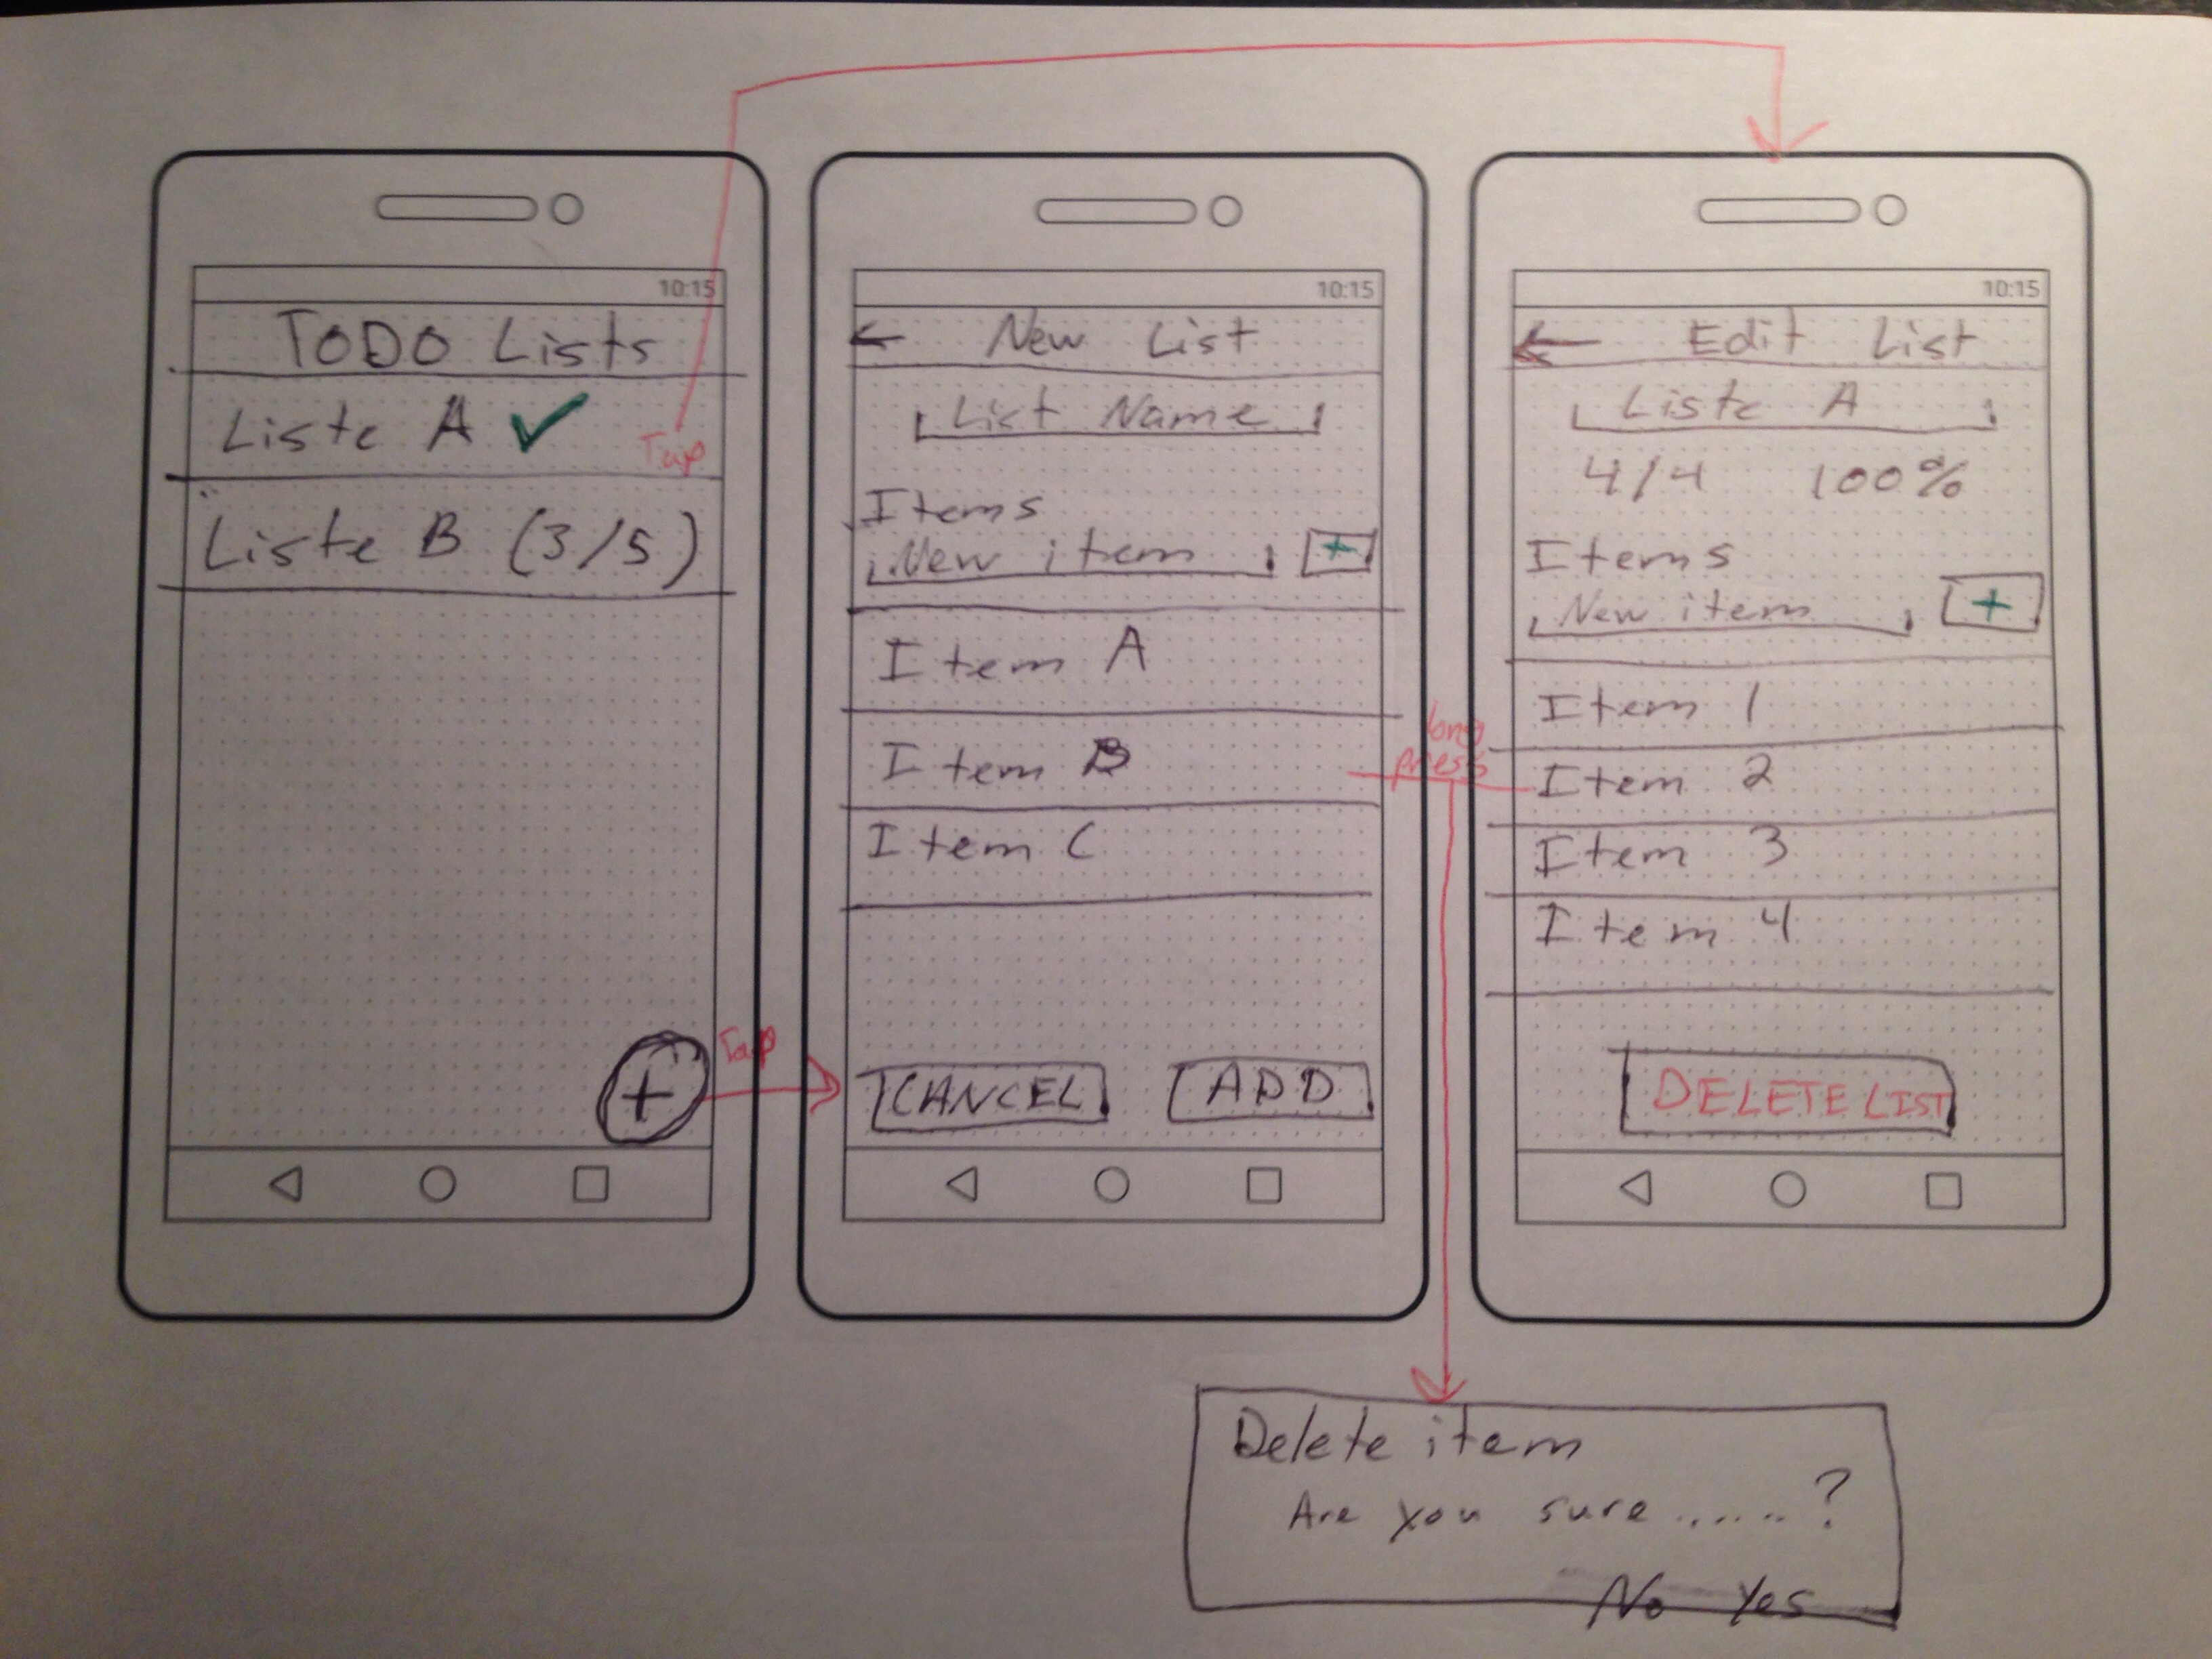 10:15
TODO Lists
Liste A ✓
Tap
Liste B (3/5)
+
Tap
10:15
← New List
List Name
Items
New item +
Item A
Item B
Item C
CANCEL ADD
long
press
10:15
← Edit List
Liste A
4/4 100%
Items
New item +
Item 1
Item 2
Item 3
Item 4
DELETE LIST
Delete item
Are you sure ......?
No Yes